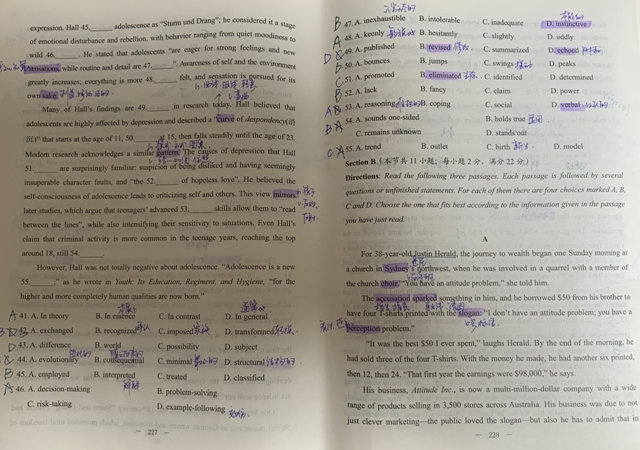 expression. Hall 45.______ adolescence as "Sturm und Drang"; he considered it a stage
of emotional disturbance and rebellion, with behavior ranging from quiet moodiness to
wild 46.______. He stated that adolescents "are eager for strong feelings and new
sensations, while routine and detail are 47.______". Awareness of self and the environment
greatly increases; everything is more 48.______ felt, and sensation is pursued for its
own sake.
Many of Hall's findings are 49.______ in research today. Hall believed that
adolescents are highly affected by depression and described a "curve of despondency(沮
丧)" that starts at the age of 11, 50.______ at 15, then falls steadily until the age of 23.
Modern research acknowledges a similar pattern. The causes of depression that Hall
51.______ are surprisingly familiar: suspicion of being disliked and having seemingly
insuperable character faults, and "the 52.______ of hopeless love". He believed the
self-consciousness of adolescence leads to criticizing self and others. This view mirrors
later studies, which argue that teenagers' advanced 53.______ skills allow them to "read
between the lines", while also intensifying their sensitivity to situations. Even Hall's
claim that criminal activity is more common in the teenage years, reaching the top
around 18, still 54.______.
However, Hall was not totally negative about adolescence. "Adolescence is a new
55.______," as he wrote in Youth: In Education, Regiment, and Hygiene, "for the
higher and more completely human qualities are now born."
A 41. A. In theory B. In essence C. In contrast D. In general
42. A. exchanged B. recognized C. imposed D. transformed
D 43. A. difference B. world C. possibility D. subject
44. A. evolutionary B. consequential C. minimal D. structural
B 45. A. employed B. interpreted C. treated D. classified
A 46. A. decision-making B. problem-solving
C. risk-taking D. example-following
— 227 —
B 47. A. inexhaustible B. intolerable C. inadequate D. instinctive
A 48. A. keenly B. hesitantly C. slightly D. oddly
49. A. published B. revised C. summarized D. echoed
B 50. A. bounces B. jumps C. swings D. peaks
C 51. A. promoted B. eliminated C. identified D. determined
52. A. lack B. fancy C. claim D. power
53. A. reasoning B. coping C. social D. verbal
54. A. sounds one-sided B. holds true
C. remains unknown D. stands out
55. A. trend B. outlet C. birth 新生 D. model
Section B (本节共 11 小题; 每小题 2 分, 满分 22 分)
Directions: Read the following three passages. Each passage is followed by several
questions or unfinished statements. For each of them there are four choices marked A, B,
C and D. Choose the one that fits best according to the information given in the passage
you have just read.
A
For 38-year-old Justin Herald, the journey to wealth began one Sunday morning at
a church in Sydney's northwest, when he was involved in a quarrel with a member of
the church choir. "You have an attitude problem," she told him.
The accusation sparked something in him, and he borrowed $50 from his brother to
have four T-shirts printed with the slogan: "I don't have an attitude problem; you have a
perception problem."
"It was the best $50 I ever spent," laughs Herald. By the end of the morning, he
had sold three of the four T-shirts. With the money he made, he had another six printed,
then 12, then 24. "That first year the earnings were $98,000," he says.
His business, Attitude Inc., is now a multi-million-dollar company with a wide
range of products selling in 3,500 stores across Australia. His business was due to not
just clever marketing—the public loved the slogan—but also he has to admit that in
— 228 —